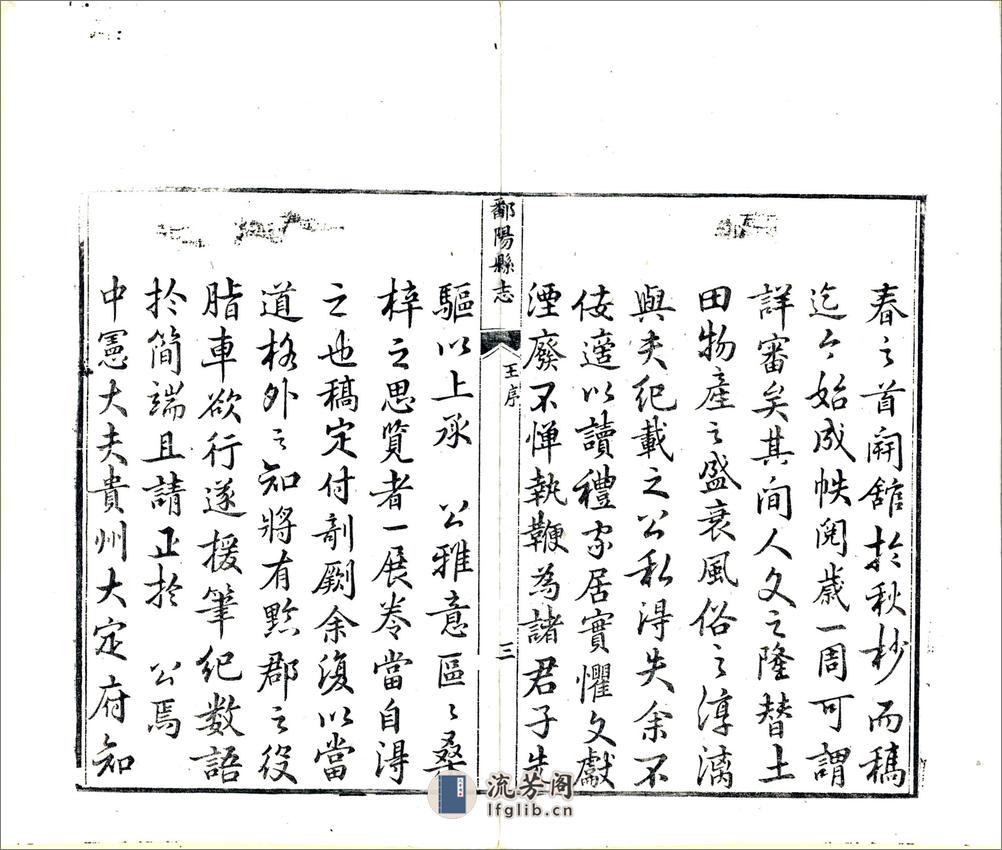 春之首開舘扵秋杪而稿
迄今始成帙閱歲一周可謂
詳審矣其间人文之隆替土
田物產之盛衰風俗之淳漓
與夫纪載之公私得失余不
佞適以讀禮家居實懼文獻
湮廢不惮執鞭為諸君子先
鄱陽縣志
王序
三
驅以上承 公雅意區〻桑
梓之思覽者一展卷當自得
之也稿定付剞劂余復以當
道格外之知將有黔郡之役
脂車欲行遂援筆纪数語
扵简端且請正扵 公焉
中憲大夫貴州大定府知
流芳阁
lfglib.cn